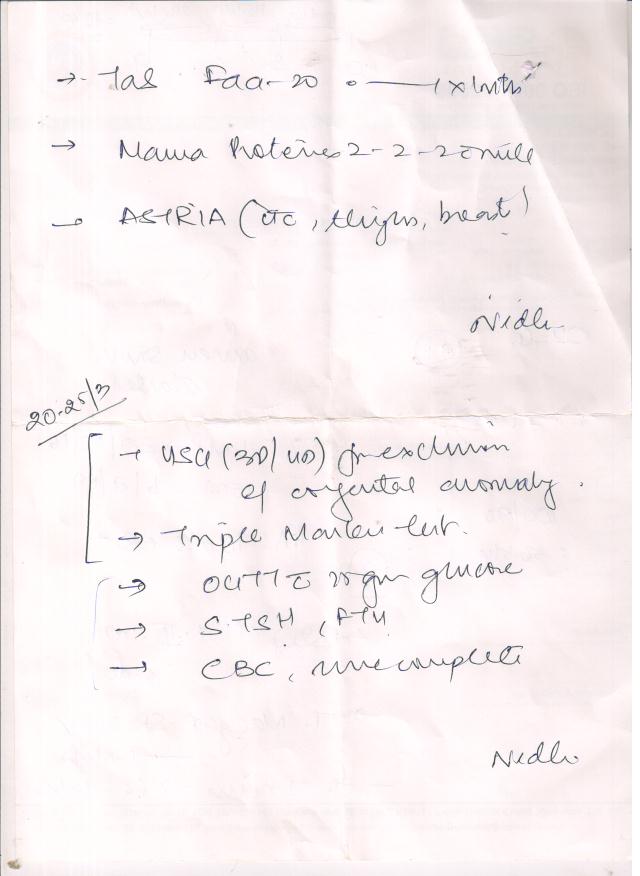 → Tab Faa-20 1 x 1 mth
→ Mama Proteins 2-2-2 c milk
→ ASTRIA ( , thighs, breast)
Nidhi
20-25/3
→ USG (3D/4D) for exclusion
of congenital anomaly.
→ Triple Marker test.
→ OGTT c gm glucose
→ S. TSH, FT4
→ CBC, urine complete
Nidhi